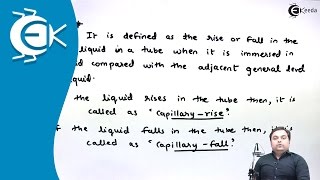 Ekeeda
It is defined as the rise or fall in the
liquid in a tube when it is immersed in
compared with the adjacent general level
the liquid rises in the tube then, it is
called as "capillary-rise"
the liquid falls in the tube then, it is
called as "Capillary-fall"